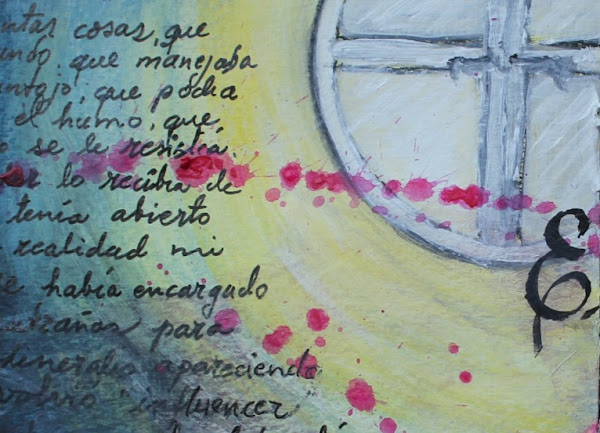 ntar cosas, que
undo, que manejaba
antojo, que podía
el humo, que
se le resistía
lo recibía de
tenía abierto
realidad mi
había encargado
para
apareciendo
"influencer"
E